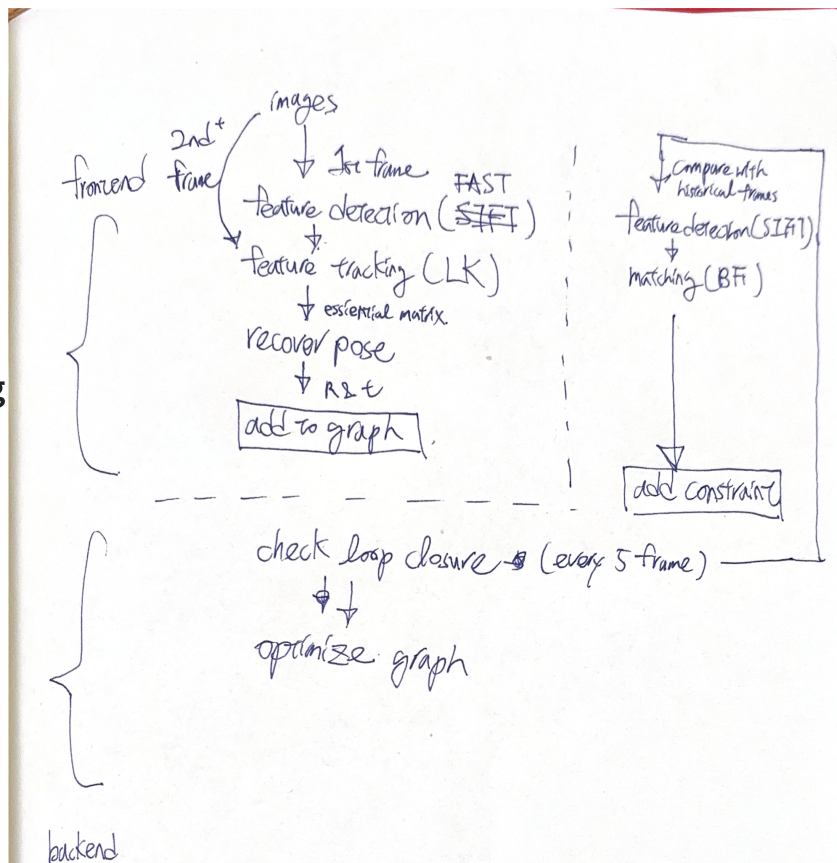 images
2nd+
frontend frame
1st frame
FAST
feature detection (SIFT)
feature tracking (LK)
essiential matrix.
recover pose
R & t
add to graph
compare with
historical frames
feature detection (SIFT)
matching (BF)
add constraint
check loop closure (every 5 frame)
optimize graph
backend
g